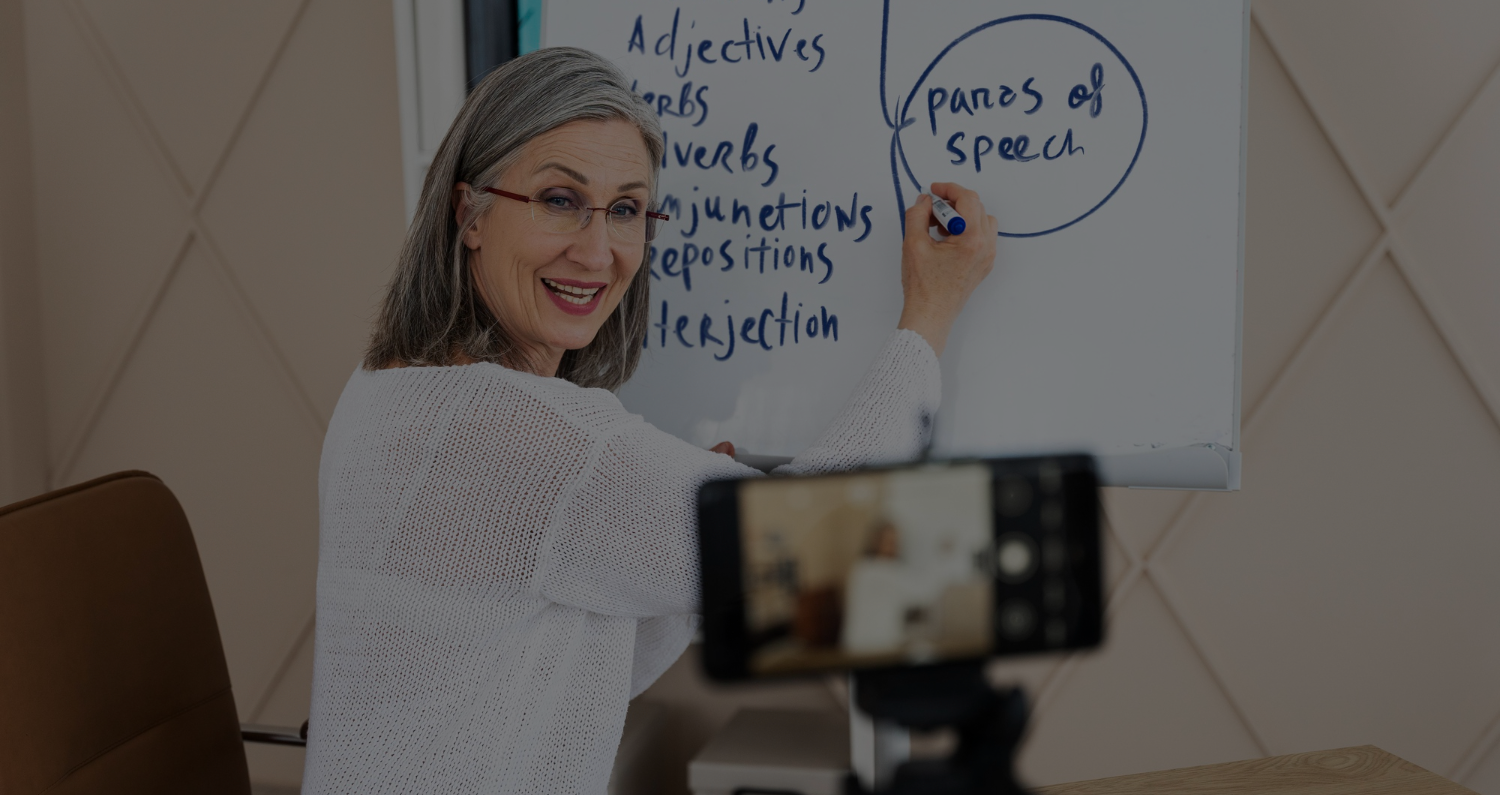 Adjectives
erbs
verbs
njunctions
repositions
terjection
parts of
speech